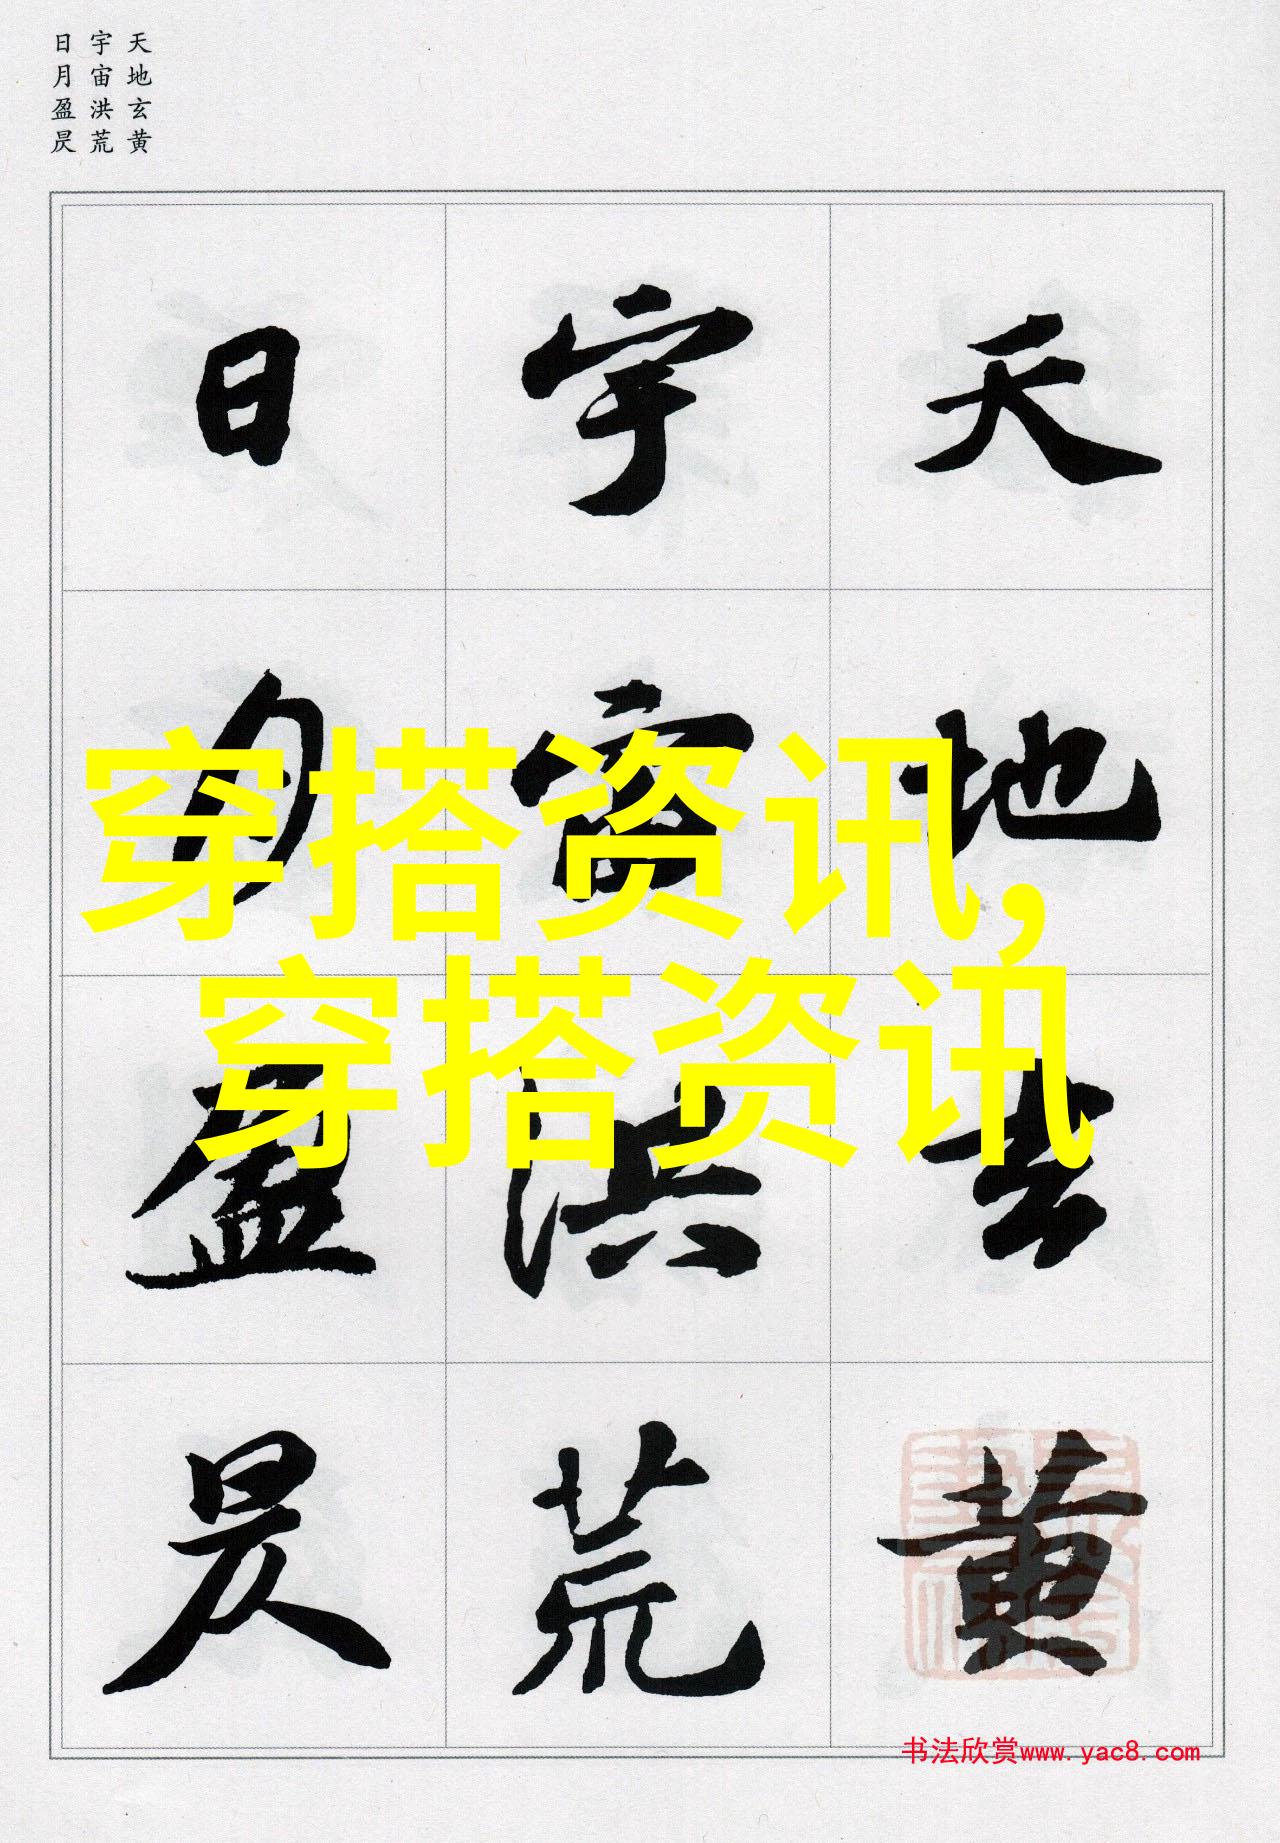 天地玄黄
宇宙洪荒
日月盈昃
天地玄黄
宇宙洪荒
日月盈昃
穿搭资讯,
穿搭资讯
书法欣赏www.yac8.com